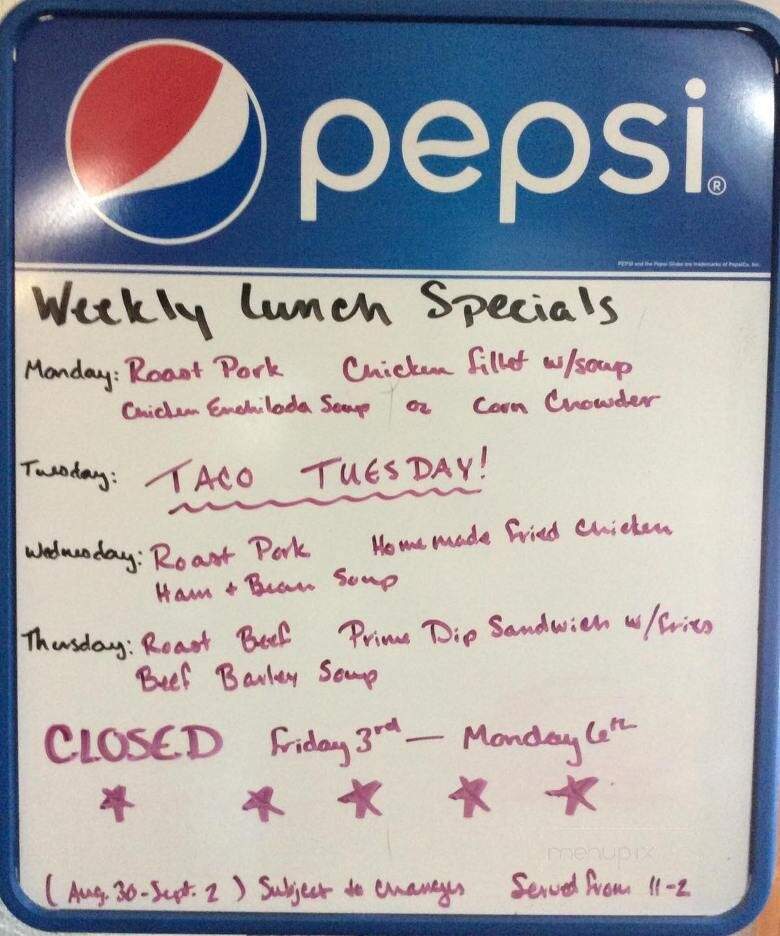 pepsi®
PEPSI and the Pepsi Globe are trademarks of PepsiCo, Inc.
Weekly Lunch Specials
Monday: Roast Pork Chicken fillet w/soup
Chicken Enchilada Soup or Corn Chowder
Tuesday: TACO TUESDAY!
Wednesday: Roast Pork Homemade Fried Chicken
Ham + Bean Soup
Thursday: Roast Beef Prime Dip Sandwich w/fries
Beef Barley Soup
CLOSED Friday 3rd — Monday 6th
(Aug. 30 - Sept. 2) Subject to changes Served from 11-2
menupix